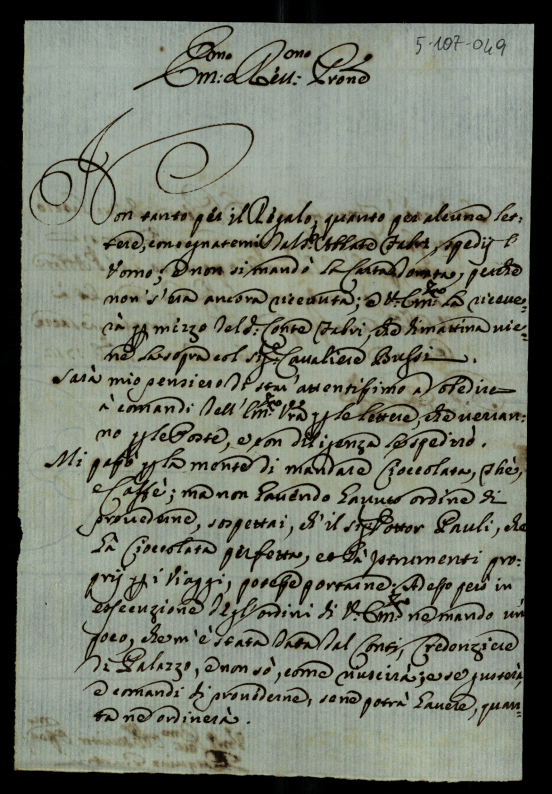 5-107-049
Em:mo e Rev:mo Prone
Non tanto per il Regalo, quanto per alcune let-
tere, consegnatemi dal Sr: Abbate Fabri, spedij l'
Vomo, e non si mandò la Carta Dorata, perche
non s'era ancora riceuuta; e V: Em:za la riceue-
rà p mezzo del Sr: Conte Fabri, che dimattina uie-
ne la sopra col Sigr: Cavaliere Bussi.
Sarà mio pensiero di star' attentissimo ad obedire
à comandi dell' Em:za Vra p le lettere, che verran-
no p le Poste, e con diligenza le spedirò.
Mi passò p la mente di mandare Cioccolata, Thè,
e Caffè; ma non hauendo hauuto ordine di
prouederne, sospettai, ch' il Sigr: Dottor Pauli, che
hà Cioccolata perfetta, et hà jstrumenti pro-
prij p i Viaggi, potesse portarne; Adesso però in
essecuzione degl' ordini di V: Em:za ne mando un
poco, che m' è stata data dal Conti, Credenziere
di Palazzo, e non sò, come riuscirà, e se gusterà,
e comandi di prouederne, se ne potrà hauere, quan-
ta ne ordinerà.